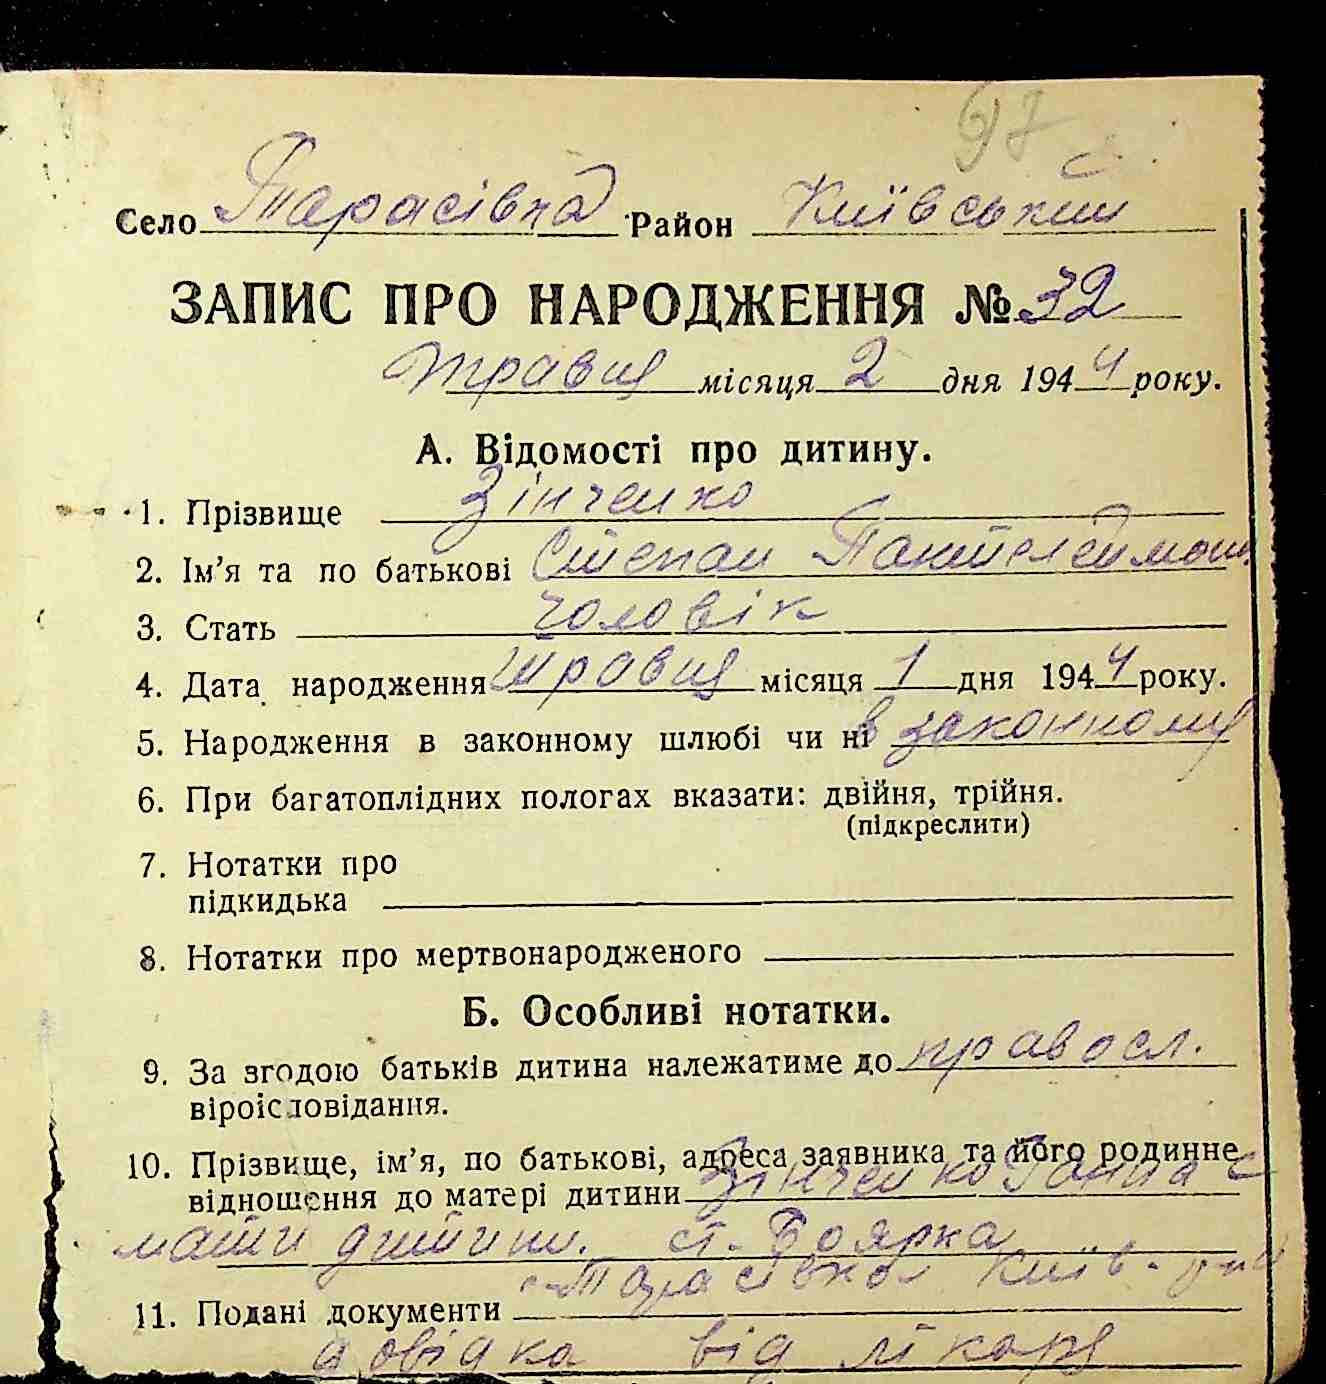 97
Село Тарасівка Район Київський
ЗАПИС ПРО НАРОДЖЕННЯ № 32
травця місяця 2 дня 1944 року.
А. Відомості про дитину.
1. Прізвище Зінченко
2. Ім’я та по батькові Степан Пантелеймон.
3. Стать чоловік
4. Дата народження травця місяця 1 дня 1944 року.
5. Народження в законному шлюбі чи ні в законному
6. При багатоплідних пологах вказати: двійня, трійня.
(підкреслити)
7. Нотатки про
підкидька
8. Нотатки про мертвонародженого
Б. Особливі нотатки.
9. За згодою батьків дитина належатиме до правосл.
віроісповідання.
10. Прізвище, ім’я, по батькові, адреса заявника та його родинне
відношення до матері дитини Зінченко Ганна
мати дитини. ст. Боярка
с. Тарасівка Київ.
11. Подані документи
довідка від лікаря